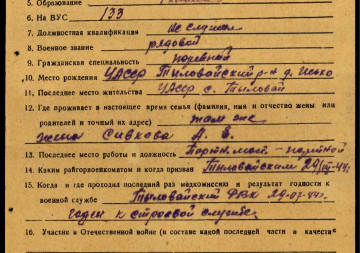 5. Образование
6. На ВУС 133
7. Должностная квалификация не служил
8. Военное звание рядовой
9. Гражданская специальность
10. Место рождения УАССР Тыловайский р-н д.
11. Последнее место жительства УАССР с. Тыловай
12. Где проживает в настоящее время семья (фамилия, имя и отчество жены или
родителей и точный их адрес) там же
жена Сивкова А.
13. Последнее место работы и должность
14. Каким райгорвоенкоматом и когда призван Тыловайским
15. Когда и где проходил последний раз медкомиссию и результат годности к
военной службе Тыловайский РВК 29.07.44г.
Годен к строевой службе
16. Участие в Отечественной войне (в составе какой последней части и качестве